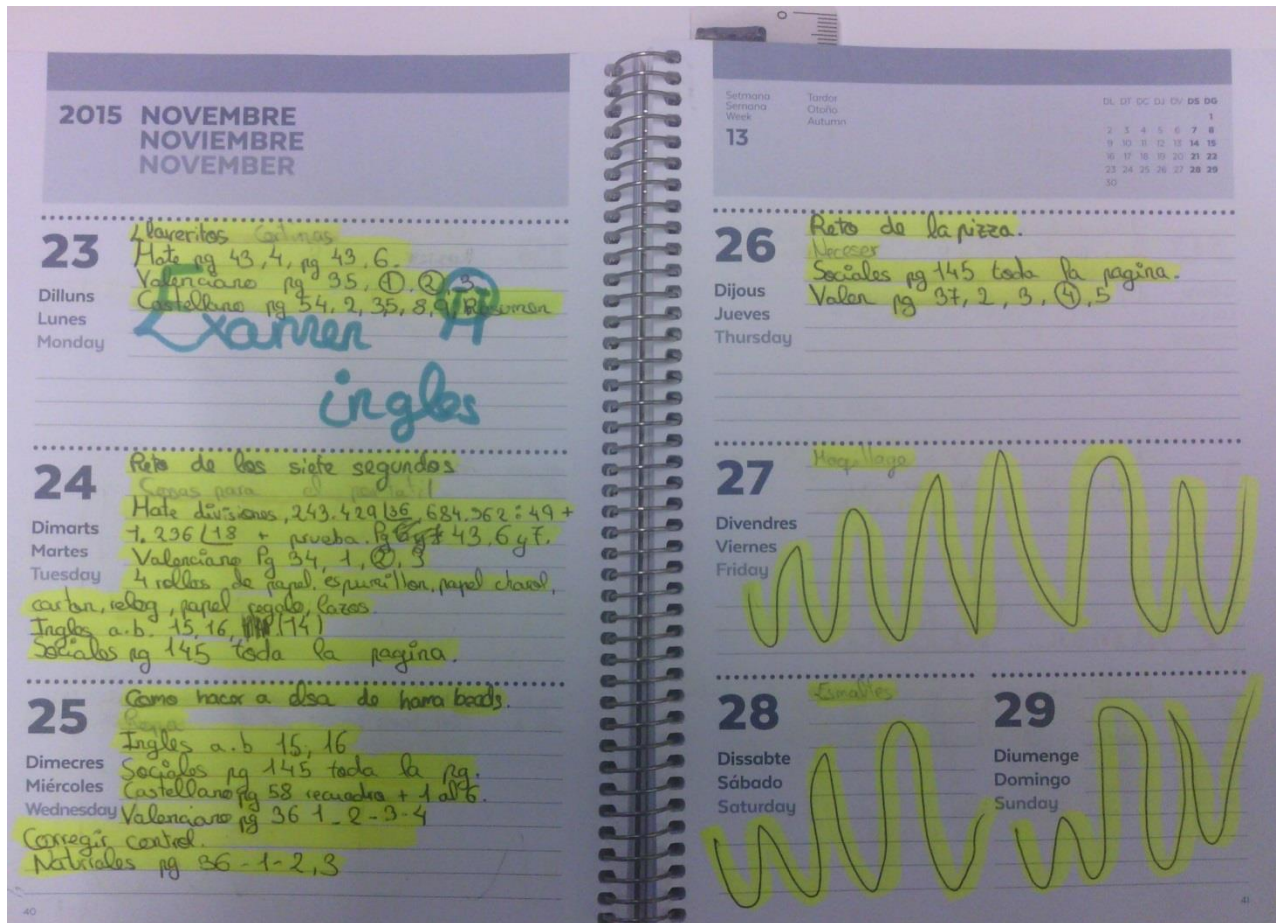 2015 NOVEMBRE
NOVIEMBRE
NOVEMBER
23
Dilluns
Lunes
Monday
Llaveritos Cortinas
Mate pg 43, 4, pg 43, 6.
Valenciano pg 35, ①, ②, 3
Castellano pg 54, 2, 35, 8, 9 Resumen
Examen
ingles
24
Dimarts
Martes
Tuesday
Reto de los siete segundos
Cosas para el
Mate divisiones, 243.429 | 36, 684.962 : 49 +
1.296 | 18 + prueba. Pg 43, 6 y 7.
Valenciano Pg 34, 1, ②, 3
4 rollos de papel, espumillon, papel charol,
carton, relog, papel regalo, lazos.
Ingles a.b. 15, 16, (14)
Sociales pg 145 toda la pagina.
25
Dimecres
Miércoles
Wednesday
Como hacer a elsa de hama beads.
Ingles a.b 15, 16
Sociales pg 145 toda la pg.
Castellano pg 58 recuadro + 1 al 6.
Valenciano pg 36 1 - 2 - 3 - 4
Corregir control.
Naturales pg 36 - 1 - 2, 3
40
Setmana
Semana
Week
13
Tardor
Otoño
Autumn
DL DT DC DJ DV DS DG
1
2 3 4 5 6 7 8
9 10 11 12 13 14 15
16 17 18 19 20 21 22
23 24 25 26 27 28 29
30
26
Dijous
Jueves
Thursday
Reto de la pizza.
Neceser
Sociales pg 145 toda la pagina.
Valen pg 37, 2, 3, ④, 5
27
Divendres
Viernes
Friday
Maquillage
28
Dissabte
Sábado
Saturday
Esmaltes
29
Diumenge
Domingo
Sunday
41